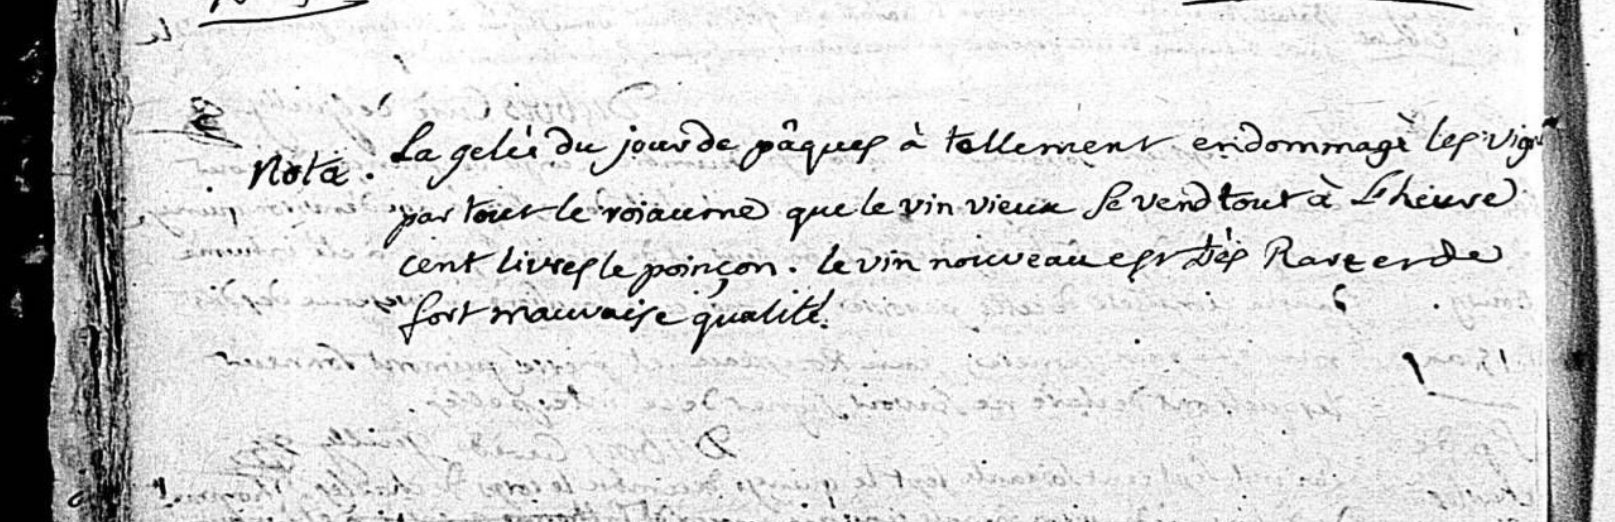 Nota. La gelée du jour de pâques à tellement endommagé les vign
par tout le roiaume que le vin vieux se vend tout à L'heure
cent livres le poinçon. le vin nouveau est très Rare et de
fort mauvaise qualité.